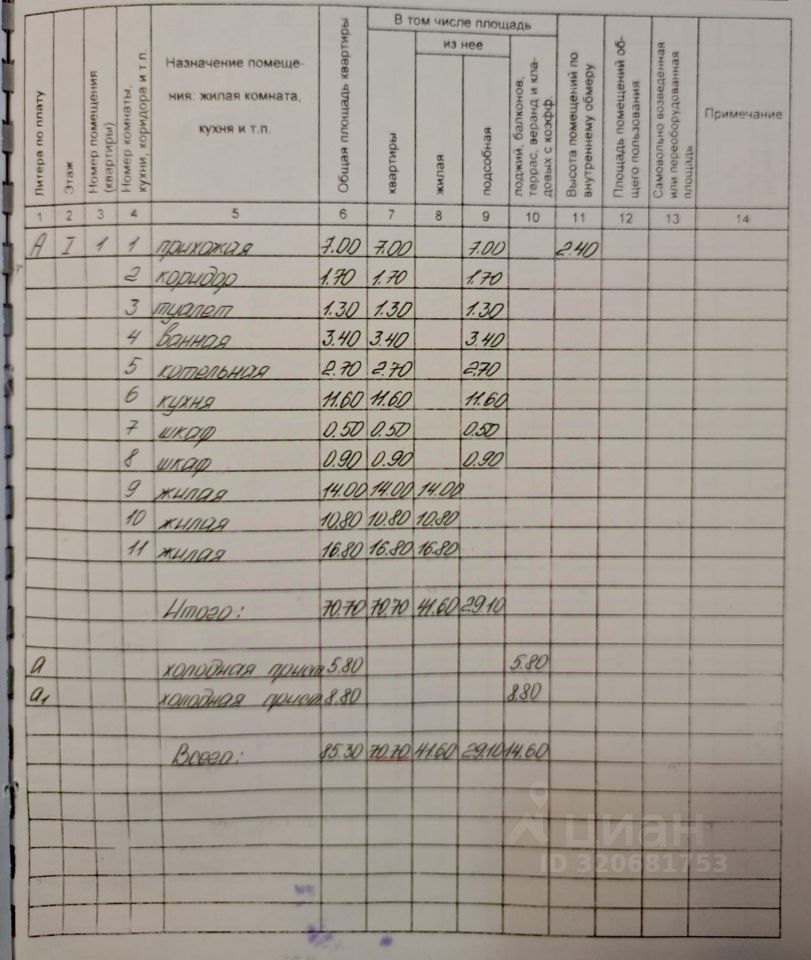 Литера по плату
Этаж
Номер помещения (квартиры)
Номер комнаты, кухни, коридора и т.п.
Назначение помеще-
ния: жилая комната,
кухня и т.п.
Общая площадь квартиры
В том числе площадь
квартиры
из нее
жилая
подсобная
лоджий, балконов, террас, веранд и кла-довых с коэфф.
Высота помещений по внутреннему обмеру
Площадь помещений об-щего пользования
Самовольно возведенная или переоборудованная площадь
Примечание
1 2 3 4 5 6 7 8 9 10 11 12 13 14
А I 1 1 прихожая 7.00 7.00 7.00 2.40
2 коридор 1.70 1.70 1.70
3 туалет 1.30 1.30 1.30
4 ванная 3.40 3.40 3.40
5 котельная 2.70 2.70 2.70
6 кухня 11.60 11.60 11.60
7 шкаф 0.50 0.50 0.50
8 шкаф 0.90 0.90 0.90
9 жилая 14.00 14.00 14.00
10 жилая 10.80 10.80 10.80
11 жилая 16.80 16.80 16.80
Итого: 70.70 70.70 41.60 29.10
а холодная прист 5.80 5.80
а₁ холодная прист 8.80 8.80
Всего: 85.30 70.70 41.60 29.10 14.60
циан
ID 320681753